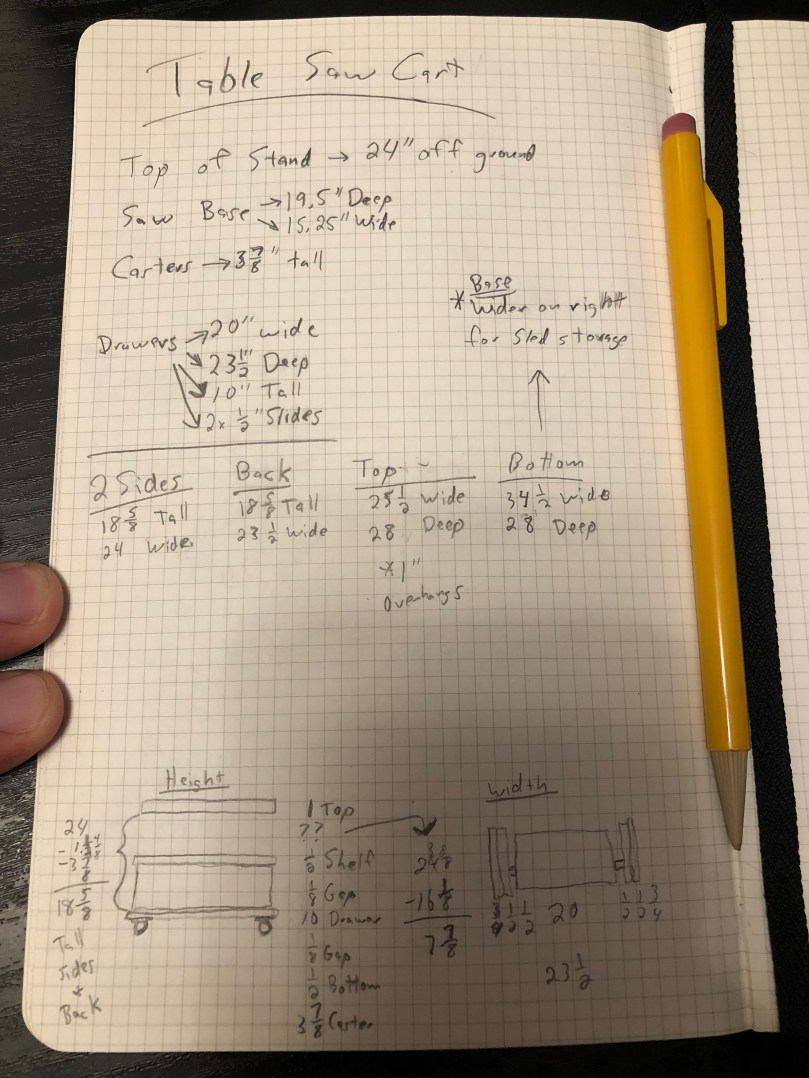 Table Saw Cart
Top of Stand → 24" off ground
Saw Base → 19.5" Deep
↘ 15.25" Wide
Casters → 3 7/8" tall
* Base
Wider on right
for Sled storage
Drawers → 20" wide
23 1/2" Deep
10" Tall
2x 1/2" Slides
2 Sides
18 5/8 Tall
24 Wide
Back
18 5/8 Tall
23 1/2 Wide
Top
25 1/2 Wide
28 Deep
*1"
Overhangs
Bottom
34 1/2 Wide
28 Deep
Height
24
- 3 7/8
18 5/8
Tall
Sides
+
Back
1 Top
??
1/2 Shelf
1/8 Gap
10 Drawer
1/8 Gap
1/2 Bottom
3 7/8 Caster
-16 1/8
7 7/8
Width
3/4 1/2 1/2 20 1/2 1/2 3/4
23 1/2